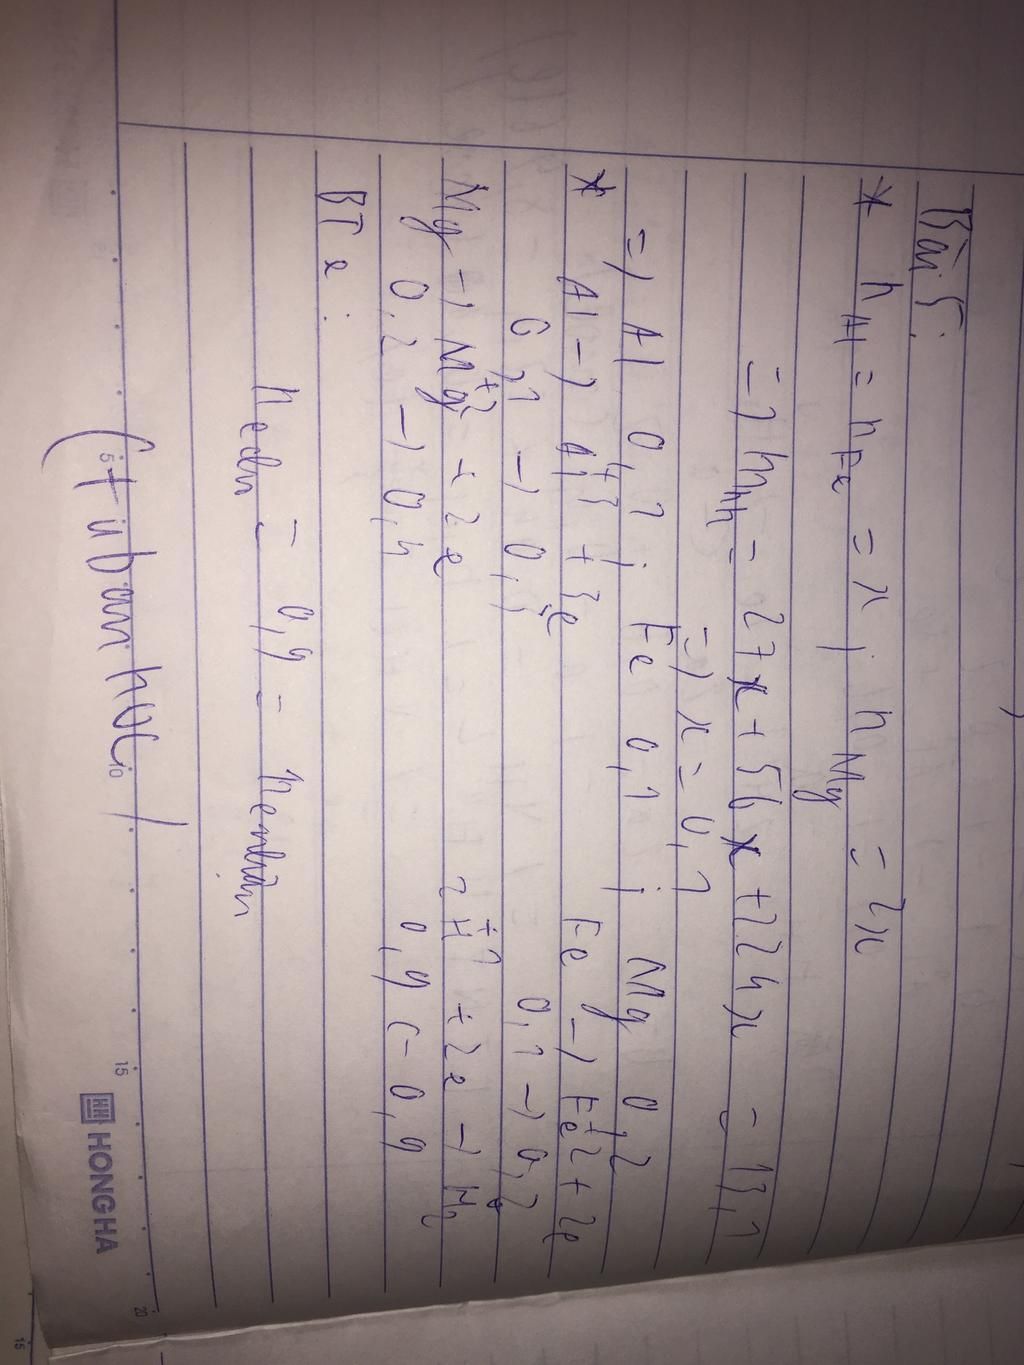 Bài 5:
* nAl = nFe = x ; nMg = 2x
=> mhh = 27x + 56x + 2.24x = 13,1
=> x = 0,1
=> Al 0,1 ; Fe 0,1 ; Mg 0,2
* Al -> Al+3 + 3e Fe -> Fe+2 + 2e
0,1 -> 0,3 0,1 -> 0,2
Mg -> Mg+2 + 2e 2H+1 + 2e -> H2
0,2 -> 0,4 0,9 <- 0,9
BT e:
necho = 0,9 = nenhận
15
HH HONG HA
5
10
15
20